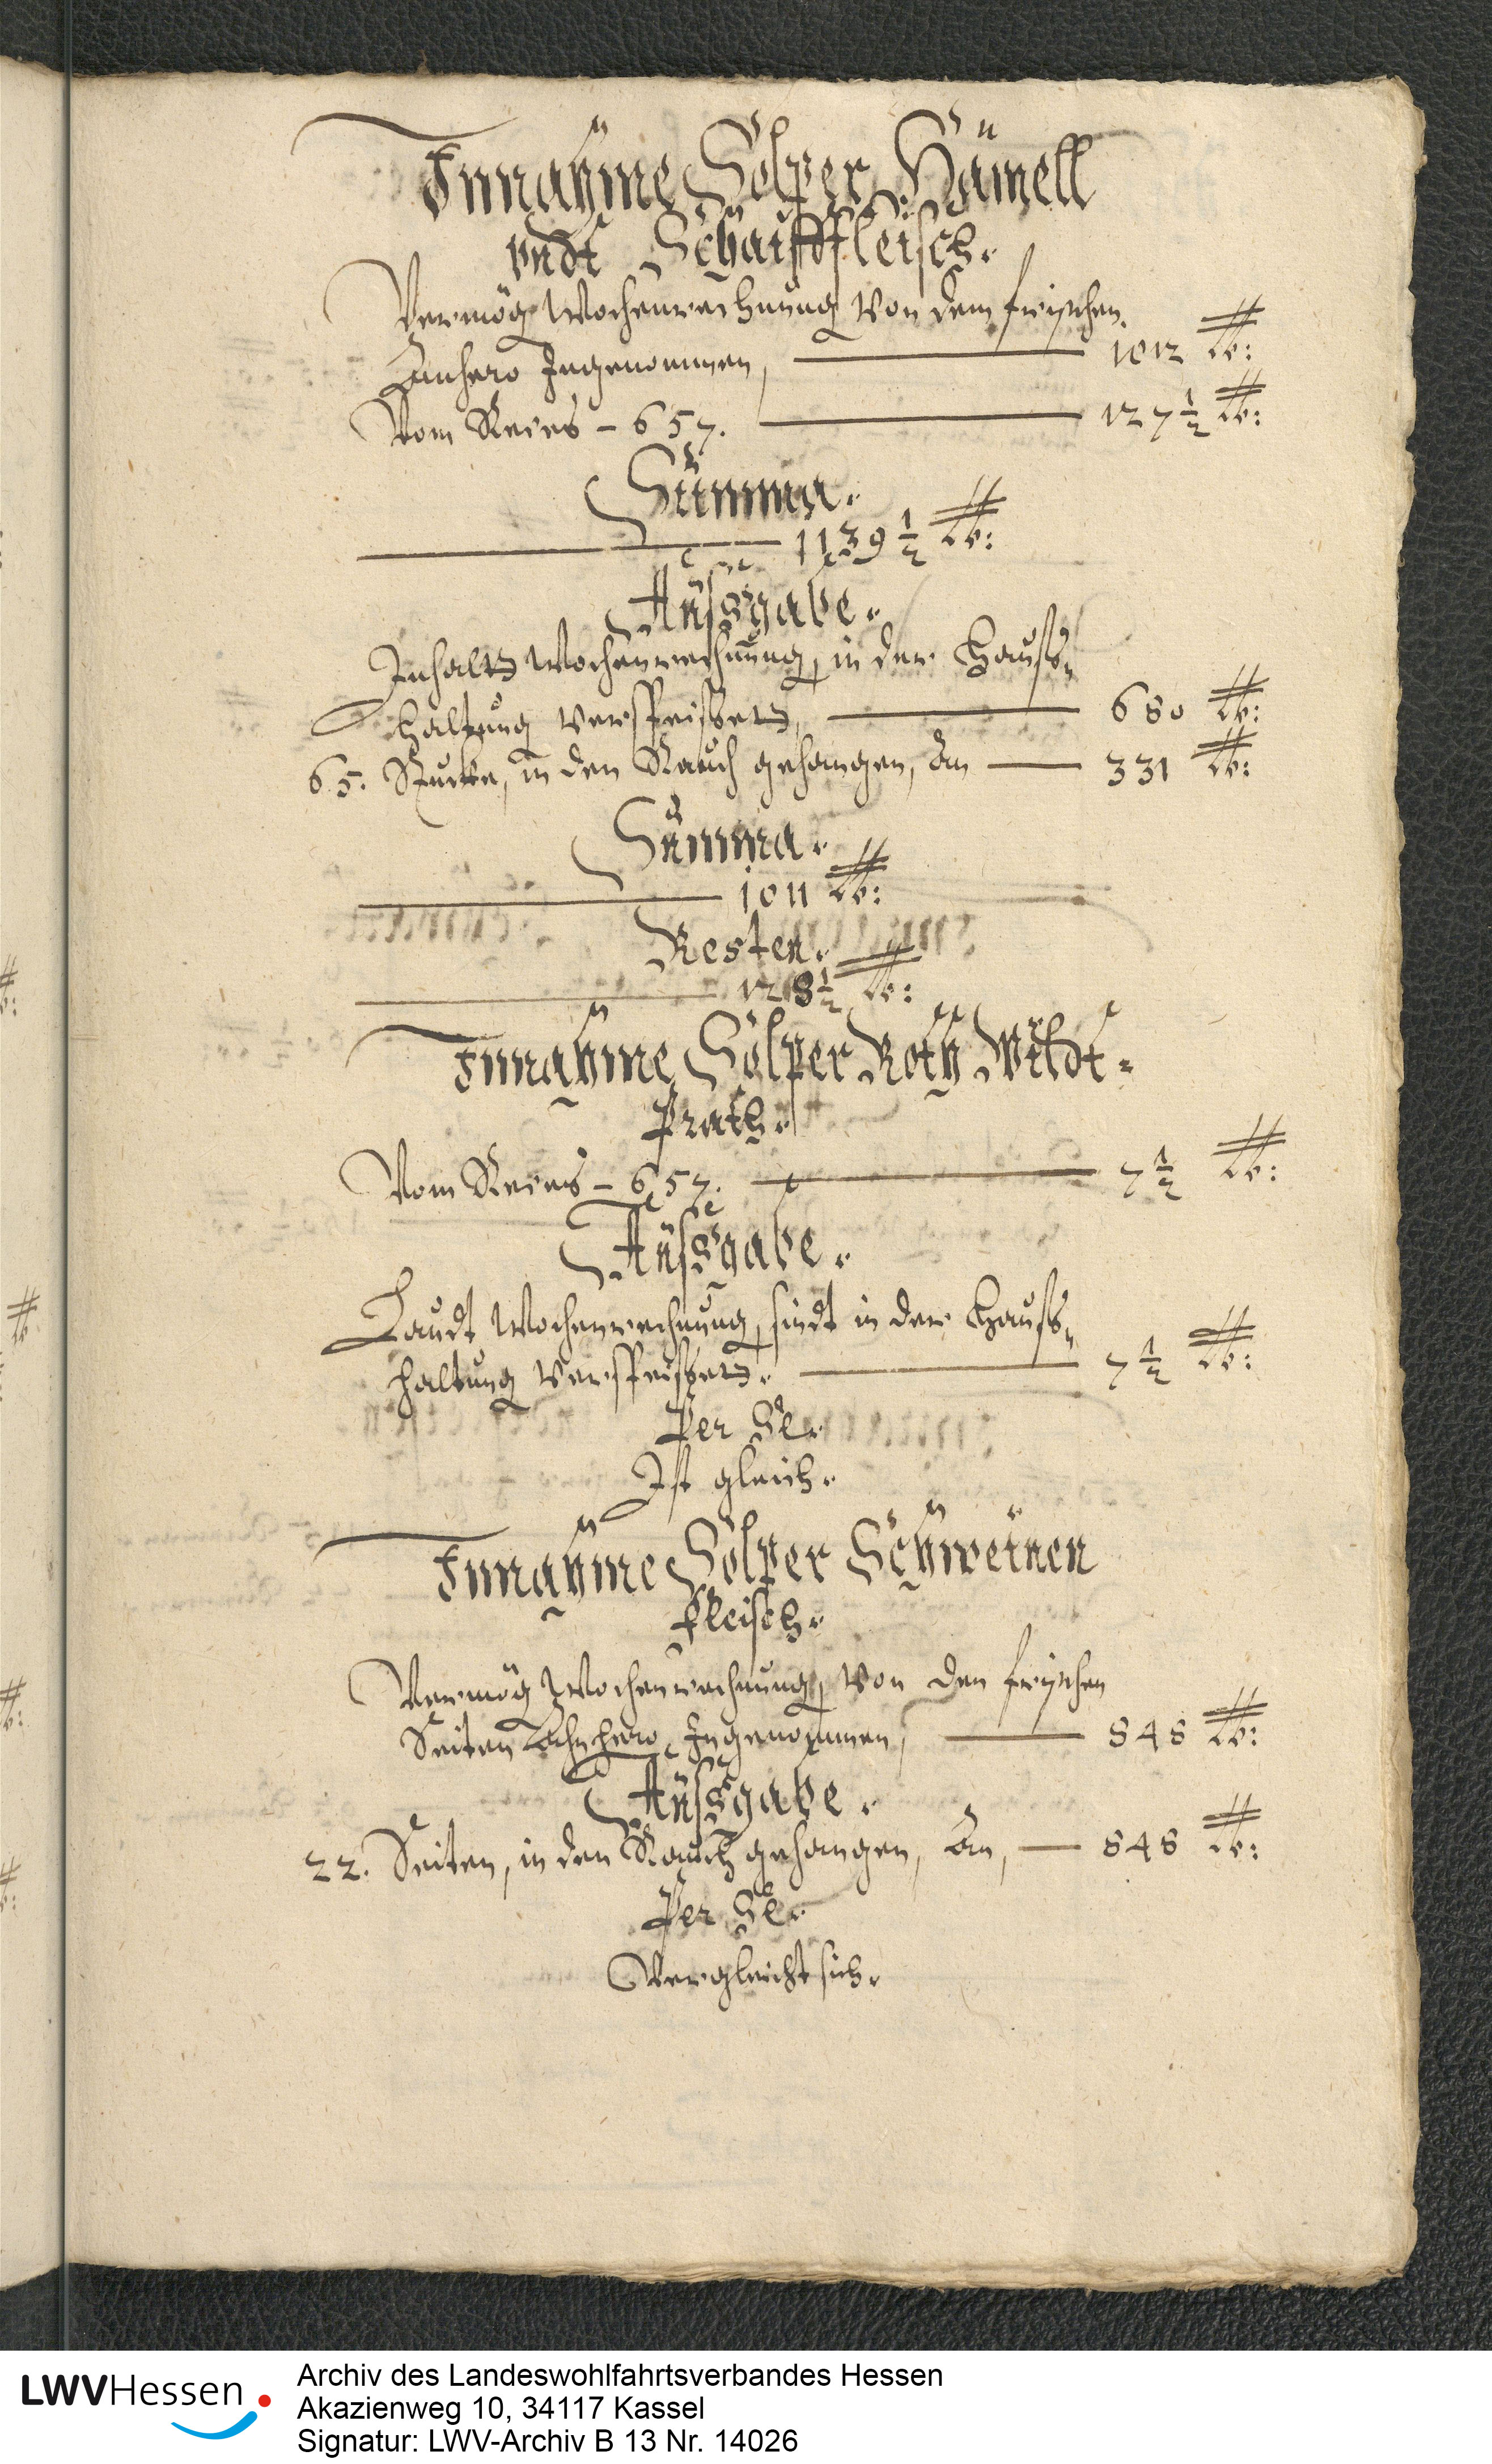 Innahme Sölper Hämell
vndt Schaiffffleisch.
Vermög Wochenrechnung von dem frischen
Anhero Ingenommen, 1012 lb:
Vom Reces – 657. 127 1/2 lb:
Summa.
1139 1/2 lb:
Außgabe.
Inhalts Wochenrechnung, in der Hauß-
haltung verspeißet, 680 lb:
65. Stucke, in den Rauch gehangen, an 331 lb:
Summa.
1011 lb:
Resten.
128 1/2 lb:
Innahme Sölper Roth Wildt-
prath.
Vom Reces – 657. 7 1/2 lb:
Außgabe.
Laudt Wochenrechnung, sindt in der Hauß-
haltung verspeißet. 7 1/2 lb:
Per Se.
Ist gleich.
Innahme Sölper Schweinen
fleisch.
Vermög Wochenrechnung, von den frischen
Seiten Anhero Ingenommen, 848 lb:
Außgabe.
22. Seiten, in den Rauch gehangen, an, 848 lb:
Per Se.
Vergleicht sich.
LWVHessen
Archiv des Landeswohlfahrtsverbandes Hessen
Akazienweg 10, 34117 Kassel
Signatur: LWV-Archiv B 13 Nr. 14026